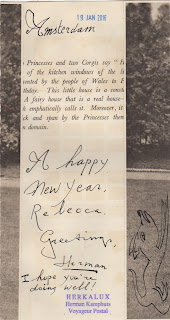 Amsterdam
19 JAN 2016
Princesses and two Corgis say "
of the kitchen windows of the li
ented by the people of Wales to
thday. This little house is a
A fairy house that is a real house-
emphatically calls it. Moreover, it
ck and span by the Princesses them
n domain.
A happy
New Year,
Rebecca.
Greetings,
Herman
I hope you're
doing well!
HERKALUX
Herman Kamphuis
Voyageur Postal